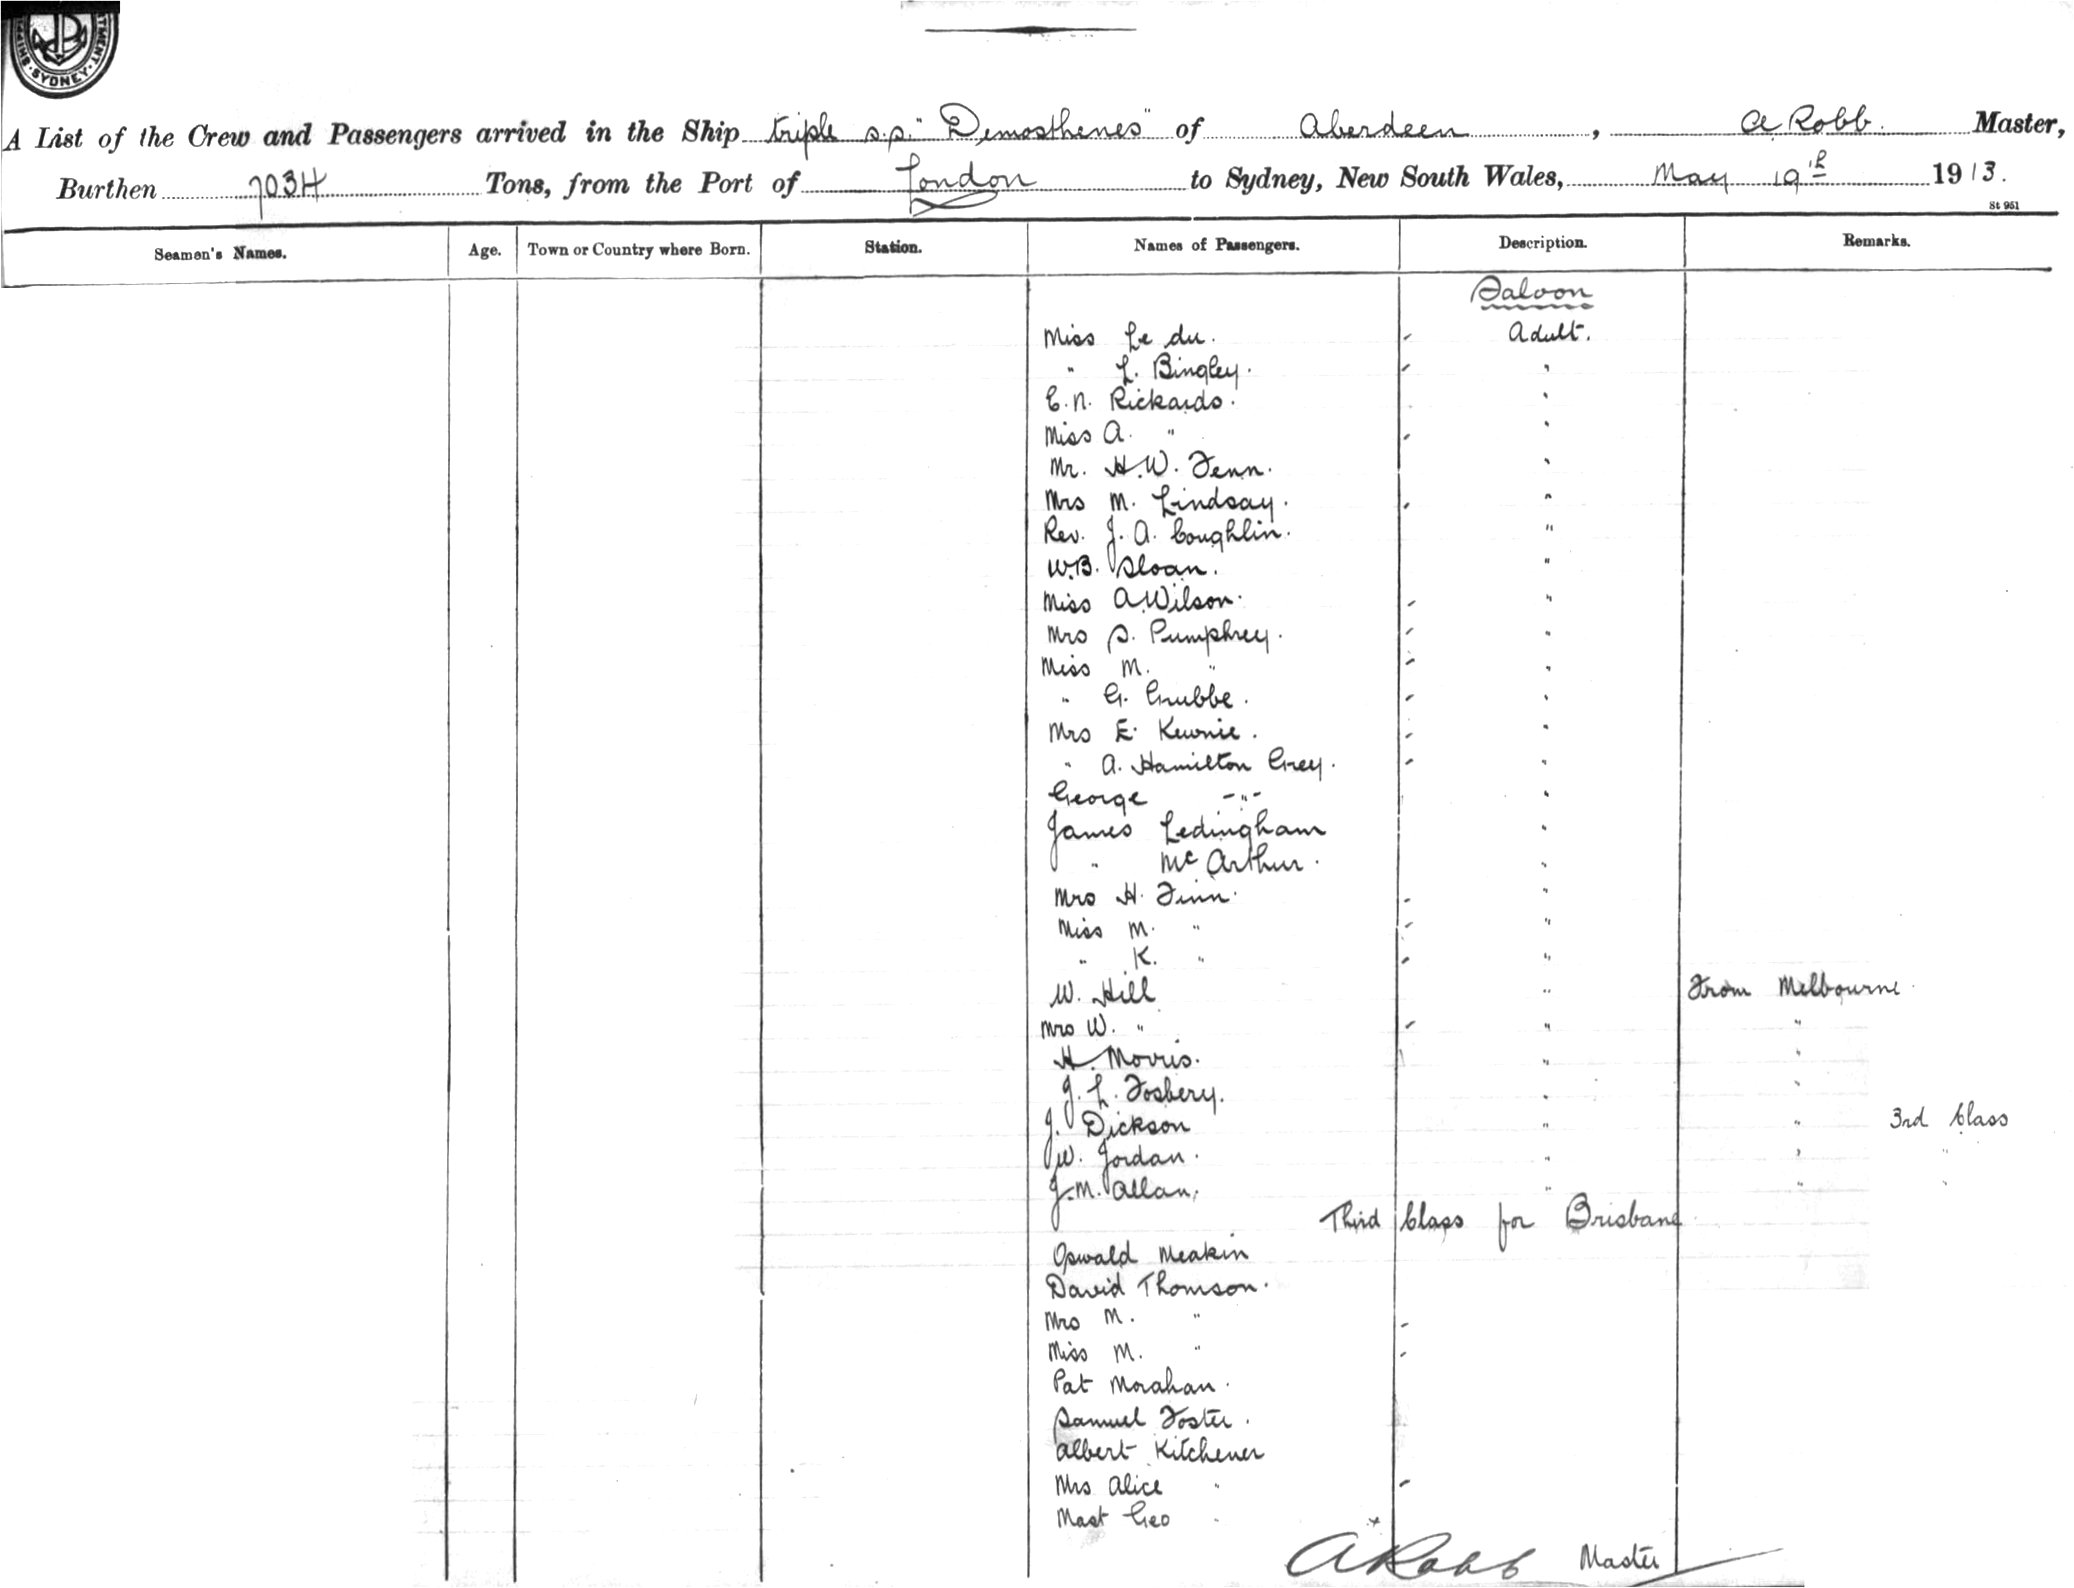 SYDNEY
A List of the Crew and Passengers arrived in the Ship triple s.s. "Demosthenes" of Aberdeen, A Robb. Master,
Burthen 7034 Tons, from the Port of London to Sydney, New South Wales, May 19th 1913.
St 951
Seamen's Names. Age. Town or Country where Born. Station. Names of Passengers. Description. Remarks.
Saloon
Miss Le du. Adult.
" L. Bingley. "
C.N. Rickards. "
Miss A. " "
Mr. H.W. Fenn. "
Mrs M. Lindsay. "
Rev. J. A. Coughlin. "
W.B. Sloan. "
Miss A Wilson. "
Mrs S. Pumphrey. "
Miss M. " "
" G. Grubbe. "
Mrs E. "
" A. Hamilton Grey. "
George -"- "
James Ledingham "
" McArthur. "
Mrs H. Finn. "
Miss M. " "
" K. " "
W. Hill " From Melbourne.
Mrs W. " " "
H. Morris. " "
J. L. Fosbery. " "
J. Dickson " " 3rd Class
W. Jordan. " " "
J.M. Allan. " " "
Third Class for Brisbane
Oswald Meakin
David Thomson.
Mrs M. "
Miss M. "
Pat Morahan.
Samuel Foster.
Albert Kitchener
Mrs Alice "
Mast Geo "
A Robb Master